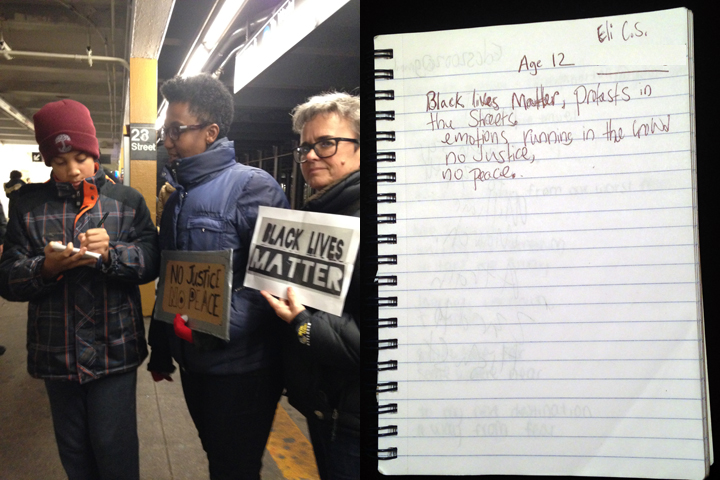 23
Street
NO JUSTICE
NO PEACE
BLACK LIVES
MATTER
Eli C.S.
Age 12
Black lives Matter, Protasts in
the Streets.
emotions running in the Crowd
no Justice,
no peace.